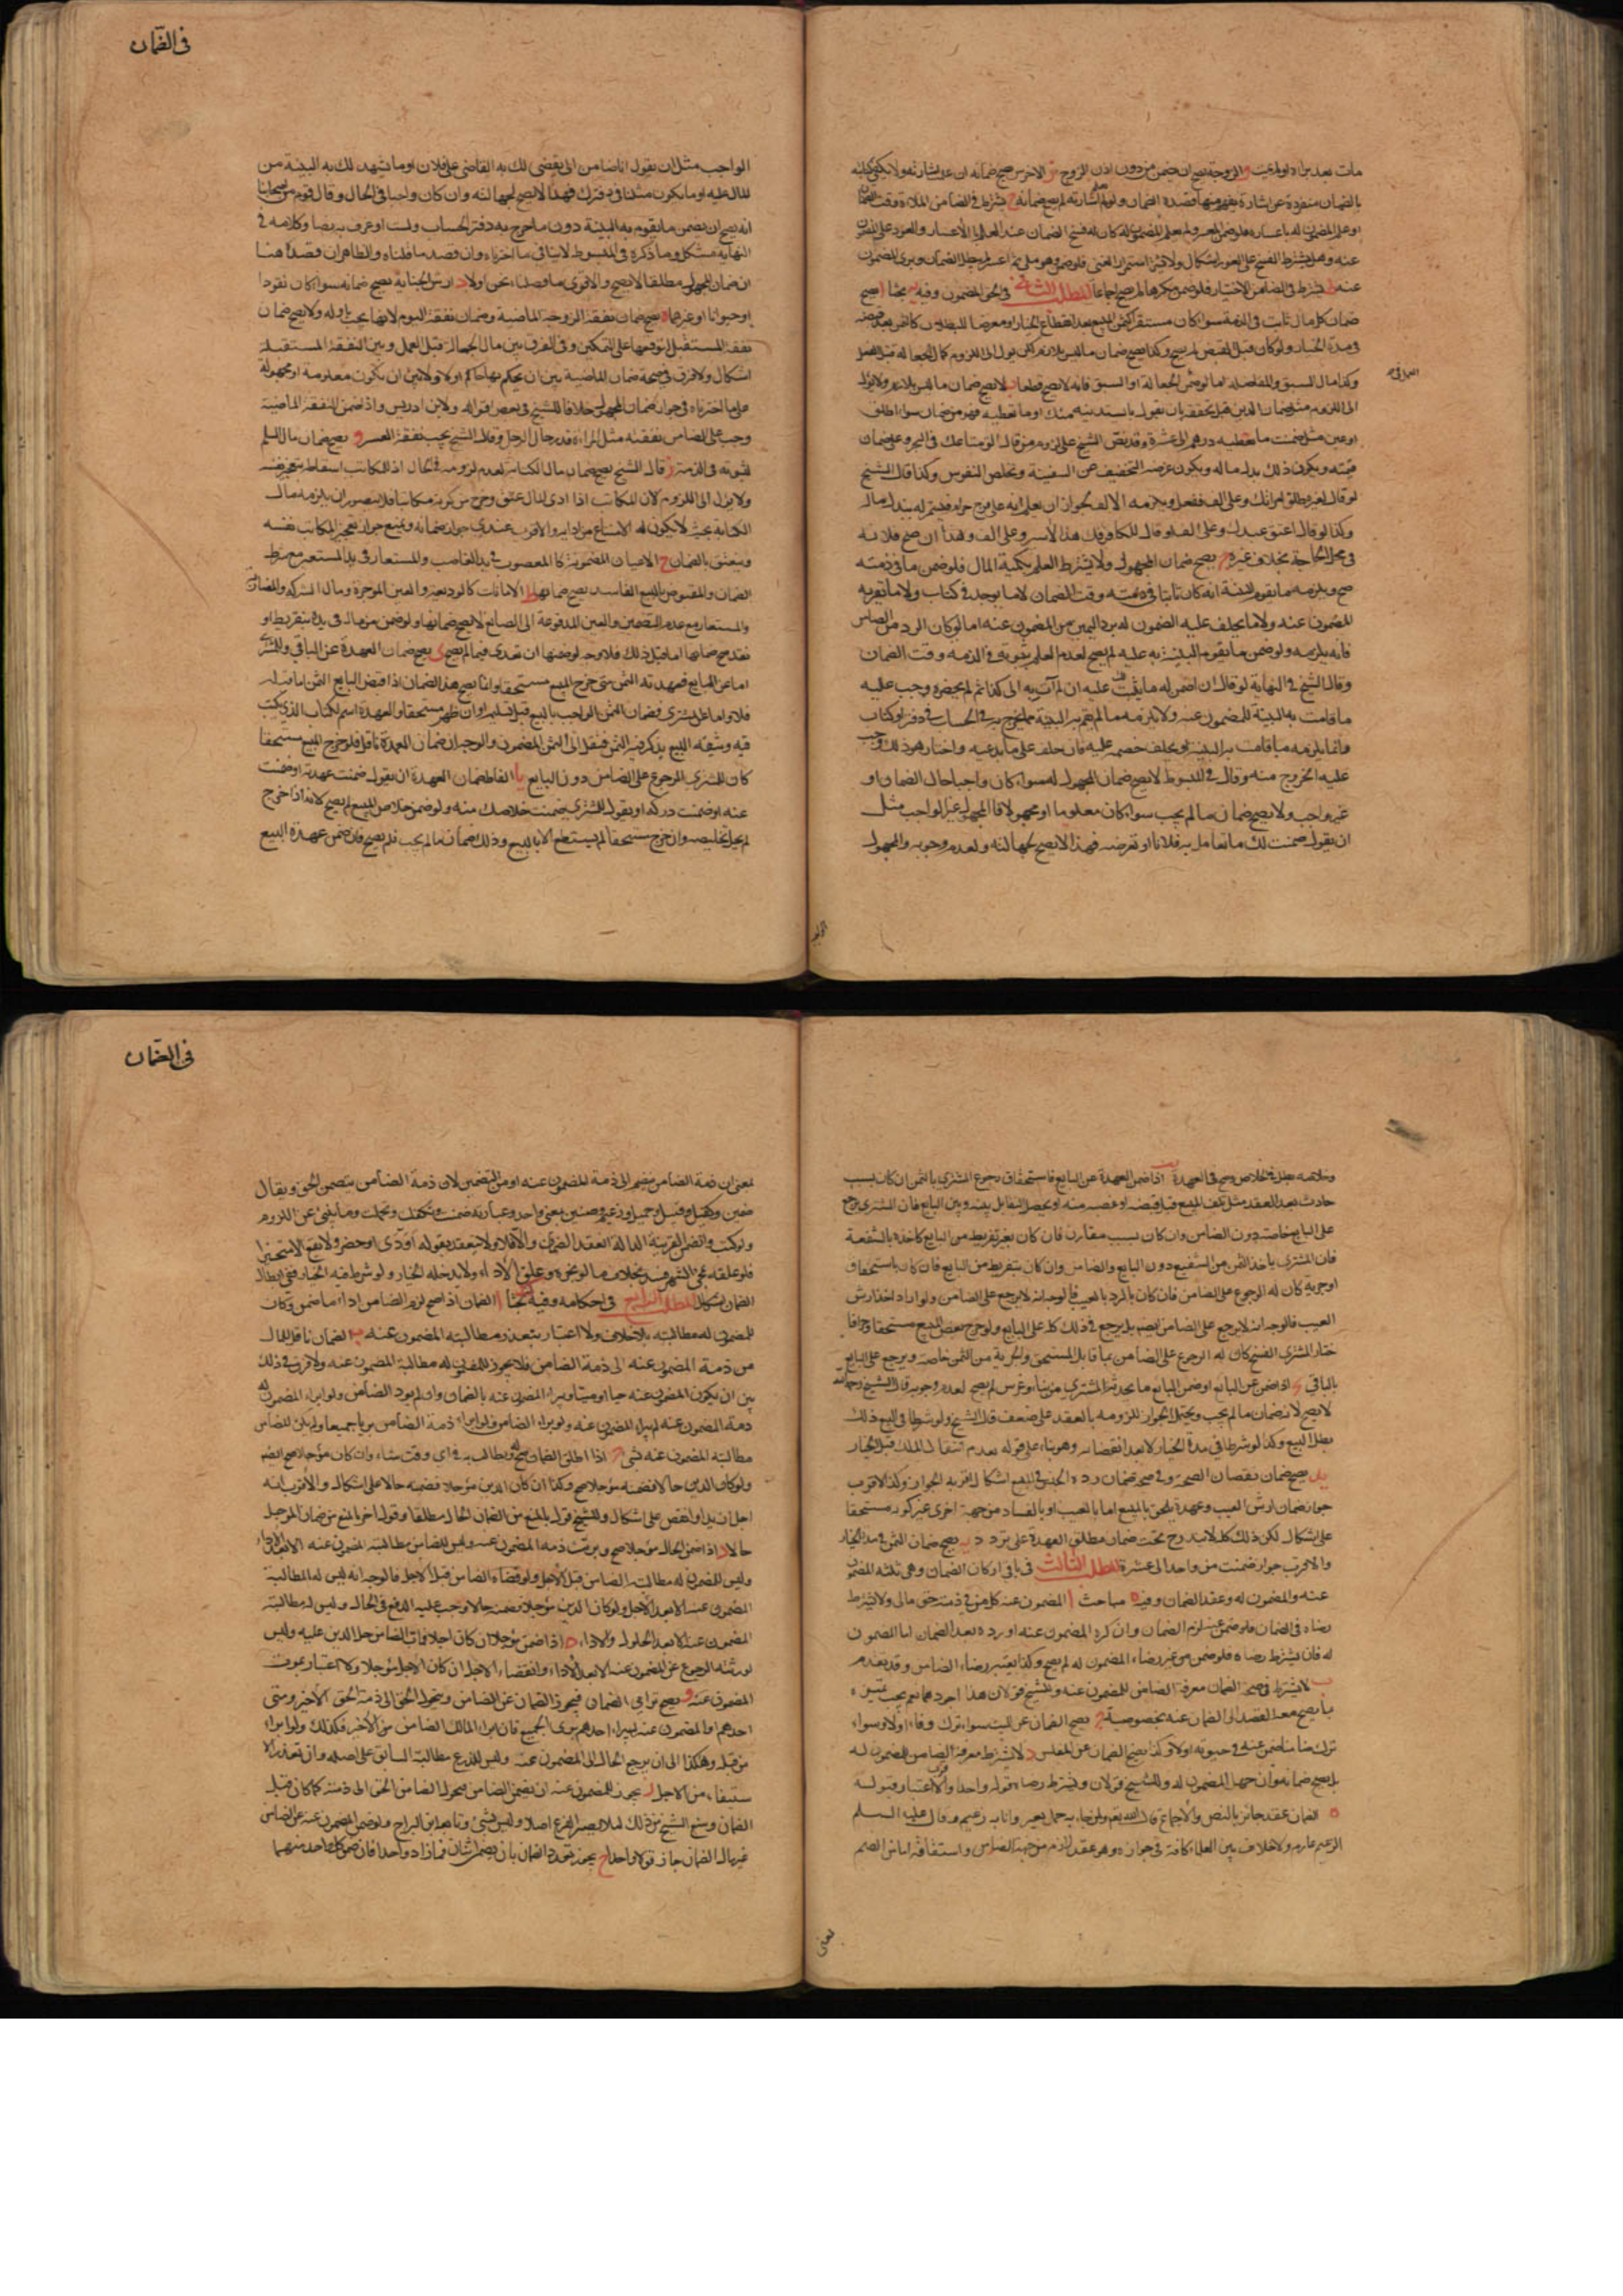 في الضمان
مات بعد بزاد اولم يمت و الزوجة يصح ان تضمن من دون اذن الزوج ز الاخرس يصح ضمانه ان عرف اشارته ولا يكفي كتابته
بالضمان منفردة عن اشارة يفهم منها قصده الضمان ولو لم يعلم اشارته لم يصح ضمانه ح يشترط في الضامن الملاءة وقت الضمان
او علم المضمون له باعساره فلو ضمن المعسر ولم يعلم المضمون له كان له فسخ الضمان عند العلم بالاعسار والعود على المضمون
عنه وهل يشترط الفسخ على الفور اشكال ولا يشترط استمرار الغنى فلو ضمن وهو ملي ثم اعسر لم يبطل الضمان وبرئ المضمون
عنه ط يشترط في الضامن الاختيار فلو ضمن مكرها لم يصح اجماعا المطلب الثاني في الحق المضمون وفيه يه بحثا ا يصح
ضمان كل مال ثابت في الذمة سواء كان مستقرا كثمن المبيع بعد انقطاع الخيار او معرضا للبطلان كالثمن بعد قبضه
في مدة الخيار ولو كان قبل القبض لم يصح وكذا يصح ضمان ما ليس بلازم لكن يؤل الى اللزوم كمال الجعالة قبل الفعل
وكذا مال السبق والمناضلة اما لو ضمن الجعالة او السبق فانه لا يصح قطعا ب لا يصح ضمان ما ليس بلازم ولا يؤل
الى اللزوم مثل ضمان الدين قبل تحققه بان يقول ما يستدينه منك او ما تعطيه فهو من ضماني سواء اطلق
او عين مثل ضمنت ما تعطيه من درهم الى عشرة وقد نص الشيخ على لزوم من قال الق متاعك في البحر وعلي ضمان
قيمته ويكون ذلك بدل ماله ويكون غرضه التخفيف عن السفينة وتخلص النفوس وكذا قال الشيخ
لو قال لغيره طلق امراتك وعلي الف ففعل ويلزمه الالف لجواز ان يعلم انه على فرج حرام فيستنزله ببذل ماله
وكذا لو قال اعتق عبدك وعلي الف او قال للكافر فك هذا الاسير وعلي الف وهذا ان صح فلانه
في محل الحاجة بخلاف غيره ج يصح ضمان المجهول ولا يشترط العلم بكمية المال فلو ضمن ما في ذمته
صح ويلزمه ما تقوم البينة انه كان ثابتا في ذمته وقت الضمان لا ما يوجد في كتاب ولا ما يقر به
المضمون عنه ولا ما يحلف عليه المضمون له برد اليمين من المضمون عنه اما لو كان الرد من الضامن
فانه يلزمه ولو ضمن ما تقوم البينة به عليه لم يصح لعدم العلم بثبوته في الذمة وقت الضمان
وقال الشيخ في النهاية لو قال انا اضمن له ما يثبت لك عليه ان لم آت به الى كذا ثم لم يحضره وجب عليه
ما قامت به البينة للمضمون عنه ولا يلزمه ما لم تقم به البينة مما يخرج به في الحساب في دفتر او كتاب
وانما يلزمه ما قامت به البينة او يحلف خصمه عليه فان حلف على ما يدعيه واختار هو ذلك وجب
عليه الخروج منه وقال في المبسوط لا يصح ضمان المجهول له سواء كان واجبا حال الضمان او
غير واجب ولا يصح ضمان ما لم يجب سواء كان معلوما او مجهولا فالمجهول غير الواجب مثل
ان يقول ضمنت لك ما تعامل به فلانا او تقرضه فهذا لا يصح لجهالته ولعدم وجوبه والمجهول
الواجب مثل ان يقول انا ضامن الى يقضي لك به القاضي على فلان او ما تشهد لك به البينة من
المال عليه او ما يكون مثبتا في دفترك فهذا لا يصح لجهالته وان كان واجبا في الحال وقال قوم من اصحابنا
انه يصح ان يضمن ما يقوم به البينة دون ما يخرج به دفتر الحساب ولست اعرف به نصا وكلامه في
النهاية مشكل وما ذكره في المبسوط لا ينافي ما اخترناه وان قصد ما قلناه والظاهر ان قصد هنا
ان ضمان المجهول مطلقا لا يصح والاقوى ما فصلناه نحن اولا د ارش الجناية يصح ضمانه سواء كان نقودا
او حيوانا او غيرهما ه يصح ضمان نفقة الزوجة الماضية وضمان نفقة اليوم لانها يجب باوله ولا يصح ضمان
نفقة المستقبل لتوقفها على التمكين وفي الفرق بين مال الجعالة قبل العمل وبين النفقة المستقبلة
اشكال ولا فرق في صحة ضمان الماضية بين ان يحكم بها حاكم اولا ولا بين ان يكون معلومة او مجهولة
على ما اخترناه في جواز ضمان المجهول خلافا للشيخ في بعض اقواله ولابن ادريس واذا ضمن النفقة الماضية
وجب على الضامن نفقته مثل المراة قدر حال الرجل وقال الشيخ يجب نفقة المعسر و يصح ضمان مال السلم
لثبوته في الذمة ز قال الشيخ يصح ضمان مال الكتابة لعدم لزومه في الحال اذ للمكاتب اسقاطه بتعجيز نفسه
ولا يؤل الى اللزوم لان المكاتب اذا ادى المال عتق وخرج من كونه مكاتبا فلا يتصور ان يلزمه مال
الكتابة بحيث لا يكون له الامتناع من ادايه والاقرب عندي جواز ضمانه ويمنع جواز تعجيز المكاتب نفسه
ويتعتق بالضمان ح الاعيان المضمونة كالمغصوب في يد الغاصب والمستعار في يد المستعير مع شرط
الضمان والمقبوض بالبيع الفاسد يصح ضمانها ط الامانات كالوديعة والعين الموجرة ومال الشركة والمضاربة
والمستعار مع عدم التضمين والعين المدفوعة الى الصانع لا يصح ضمانها ولو ضمن من مال في يده بتفريط او
تعد صح ضمانها اما قبل ذلك فلا وجه لوضمنها ان تعدى فيها لم يصح ي يصح ضمان العهدة عن البايع والمشتري
اما عن البايع فعهدته الثمن متى خرج المبيع مستحقا وانما يصح هذا الضمان اذا قبض البايع الثمن اما قبله
فلا واما على المشتري فضمان الثمن الواجب بالبيع قبل تسليمه او ان ظهر مستحقا والعهدة اسم لكتاب الذي يكتب
فيه وثيقة البيع يذكر فيه الثمن فنقل الى الثمن المضمون والوجه ان ضمان العهدة ناقل فلو خرج المبيع مستحقا
كان للمشتري الرجوع على الضامن دون البايع يا الفاظ ضمان العهدة ان يقول ضمنت عهدته او ضمنت
عنه او ضمنت دركه او يقول للمشتري ضمنت خلاصك منه ولو ضمن خلاص المبيع لم يصح لانه اذا خرج
لم يحل تخليصه وان خرج مستحقا لم يستطع الا بالبيع وذلك ضمان ما لم يجب فلم يصح فان ضمن عهدة المبيع
في الضمان
وخلاصه بطل في الخلاص وصح في العهدة يب اذا ضمن العهدة عن البايع فاستحقاق رجوع المشتري بالثمن ان كان بسبب
حادث بعد العقد مثل تلف المبيع قبل قبضه او غصبه منه او يحصل التقايل بينه وبين البايع فان المشتري يرجع
على البايع خاصة دون الضامن وان كان بسبب مقارن فان كان بغير تفريط من البايع كاخذه بالشفعة
فان المشتري ياخذ الثمن من الشفيع دون البايع والضامن وان كان بتفريط من البايع فان كان باستحقاق
او حرية كان له الرجوع على الضامن فان كان بالرد بالعيب فالوجه انه لا يرجع على الضامن ولو اراد اخذ ارش
العيب فالوجه انه لا يرجع على الضامن ايضا بل يرجع في ذلك كله على البايع ولو خرج بعض المبيع مستحقا او حرا فا
ختار المشتري الفسخ كان له الرجوع على الضامن بما قابل المستحق والحرية من الثمن خاصة ويرجع على البايع
بالباقي يج اذا ضمن عن البايع او ضمن البايع ما يحدثه المشتري من بناء وغرس لم يصح لعدم وجوبه قال الشيخ رحمه الله
لا يصح لانه ضمان ما لم يجب ويحتمل الجواز للزومه بالعقد على ضعف قال الشيخ ولو شرطا في البيع ذلك
بطل البيع وكذا لو شرطا في مدة الخيار لا بعد انقضائه وهو بناء على قوله بعدم انتقال الملك قبل الخيار
يد يصح ضمان نقصان الصحة وفي صحة ضمان رداءة الجنس في المبيع اشكال اقربه الجواز وكذا الاقرب
جواز ضمان ارش العيب وعهدة يلحق بالمبيع اما بالعيب او بالفساد من جهة اخرى غير كونه مستحقا
على اشكال لكن ذلك كله لا يندرج تحت ضمان مطلق العهدة على تردد يه يصح ضمان الثمن في مدة الخيار
والاقرب جواز ضمنت من واحد الى عشرة المطلب الثالث في باقي اركان الضمان وهي ثلثه المضمون
عنه والمضمون له وعقد الضمان وفيه ه مباحث ا المضمون عنه كل من في ذمته حق مالي ولا يشترط
رضاه في الضمان فلو ضمن عنه لزم الضمان وان كره المضمون عنه او رده بعد الضمان اما المضمون
له فان يشترط رضاه فلو ضمن من غير رضاء المضمون له لم يصح وكذا يعتبر رضاء الضامن وقد تقدم
ب لا يشترط في صحة الضمان معرفة الضامن للمضمون عنه وللشيخ قولان هذا اجودهما نعم يجب تميزه
بما يصح معه القصد الى الضمان عنه بخصوصية ج يصح الضمان عن الميت سواء ترك وفاء او لا وسواء
ترك ضامنا ضمن عنه في حيوته اولا وكذا يصح الضمان عن المفلس د لا يشترط معرفة الضامن المضمون له
بل يصح ضمانه وان جهل المضمون له وللشيخ قولان ويشترط رضاه قولا واحدا والاقوى اعتبار قبوله
ه الضمان عقد جائز بالنص والاجماع قال الله تعم ولمن جاء به حمل بعير وانا به زعيم وقال عليه السلم
الزعيم غارم ولا خلاف بين العلماء كافة في جوازه وهو عقد لازم من جهة الضامن واشتقاقه اما من الضم
بمعنى ان ذمة الضامن ينضم الى ذمة المضمون عنه او من التضمين لان ذمة الضامن يتضمن الحق ويقال
ضمين وكفيل وقبيل وحميل وزعيم وصبير بمعنى واحد وعبارته ضمنت وتكفلت وتحملت وما ينبئ عن اللزوم
ولو كتب وانضم القرينة الدالة انعقد الضمان والا فلا ولا ينعقد بقوله اؤدى او احضر ولا يقع الا منجزا
فلو علقه بمجئ الشهر فسد بخلاف ما لو نجزه وعلق الاداء ولا يدخله الخيار ولو شرط فيه الخيار ففي ابطال
الضمان اشكال المطلب الرابع في احكامه وفيه يح بحثا ا الضمان اذا صح لزم الضامن اداء ما ضمن وكان
للمضمون له مطالبته بلا خلاف ولا اعتبار بتعذر مطالبته المضمون عنه ب الضمان ناقل للمال
من ذمة المضمون عنه الى ذمة الضامن فلا يجوز للمضمون له مطالبة المضمون عنه ولا فرق في ذلك
بين ان يكون المضمون عنه حيا او ميتا ويبراء المضمون عنه بالضمان وان لم يود الضامن ولو ابراء المضمون له
ذمة المضمون عنه لم يبراء المضمون عنه ولو ابراء الضامن فلو ابراء ذمة الضامن بريا جميعا ولم يكن للضامن
مطالبة المضمون عنه بشئ ج اذا اطلق الضمان صح وله يطالب به في اي وقت شاء وان كان مؤجلا صح ايضا
ولو كان الدين حالا فضمنه مؤجلا صح وكذا ان كان الدين مؤجلا فضمنه حالا على اشكال والاقرب انه
اجل ازيد او انقص على اشكال وللشيخ قول بالمنع من الضمان الحال مطلقا وقول اخر بالمنع من ضمان المؤجل
حالا د اذا ضمن الحال مؤجلا صح وبرئت ذمة المضمون عنه وليس للضامن مطالبة المضمون عنه الا بعد الاداء
وليس للمضمون له مطالبة الضامن قبل الاجل ولو قضاه الضامن قبل الاجل فالوجه انه ليس له المطالبة
المضمون عنه الا بعد الاجل ولو كان الدين مؤجلا فضمنه حالا وجب عليه الدفع في الحال وليس له مطالبة
المضمون عنه الا بعد الحلول والاداء ه اذا ضمن مؤجلا ان كان اجلا فمات الضامن حل الدين عليه وليس
لورثته الرجوع على المضمون عنه الا بعد الاداء وانقضاء الاجل ان كان الاجل مؤجلا ولا اعتبار بموت
المضمون عنه و يصح ترامي الضمان فيجوز الضمان عن الضامن ويتحول الحق الى ذمة الحق الاخير ومتى
احدهم او المضمون عنه ببراء احدهم برئ الجميع فان ابراء المالك الضامن من الاخر فكذلك ولو ابراء
من قبله وهكذا الى ان يرجع الحال الى المضمون عنه وليس للفرع مطالبة السابق على اصله وان تعذر الا
ستيفاء من الاجل ز يجوز للمضمون عنه ان يضمن الضامن فيتحول الضامن الحق الى ذمته كما كان قبل
الضمان ومنع الشيخ من ذلك لئلا يصير الفرع اصلا وليس بشئ وتابعه ابن البراج ولو ضمن المضمون عنه عن الضامن
غير مال الضمان جاز قولا واحدا ح يجوز تعدد الضمان بان يضمن اثنان فما زاد واحدا فان ضمن كل واحد منهما